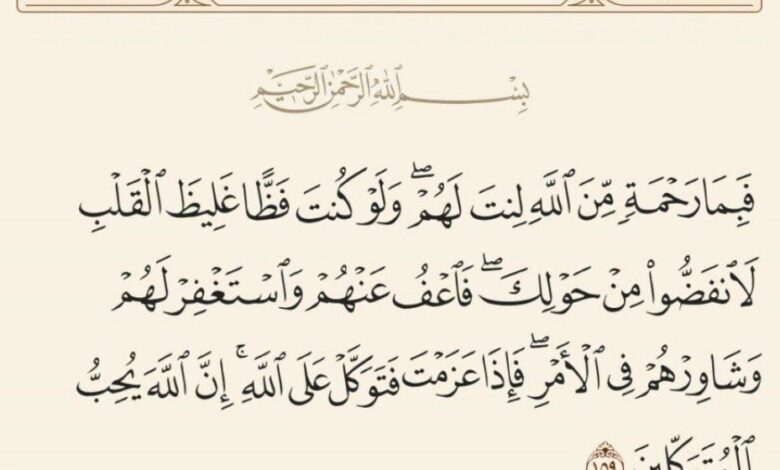 بِسْمِ ٱللَّهِ ٱلرَّحْمَٰنِ ٱلرَّحِيمِ
فَبِمَا رَحْمَةٍ مِّنَ ٱللَّهِ لِنتَ لَهُمْ ۖ وَلَوْ كُنتَ فَظًّا غَلِيظَ ٱلْقَلْبِ
لَٱنفَضُّوا۟ مِنْ حَوْلِكَ ۖ فَٱعْفُ عَنْهُمْ وَٱسْتَغْفِرْ لَهُمْ
وَشَاوِرْهُمْ فِى ٱلْأَمْرِ ۖ فَإِذَا عَزَمْتَ فَتَوَكَّلْ عَلَى ٱللَّهِ ۚ إِنَّ ٱللَّهَ يُحِبُّ
ٱلْمُتَوَكِّلِينَ ١٥٩